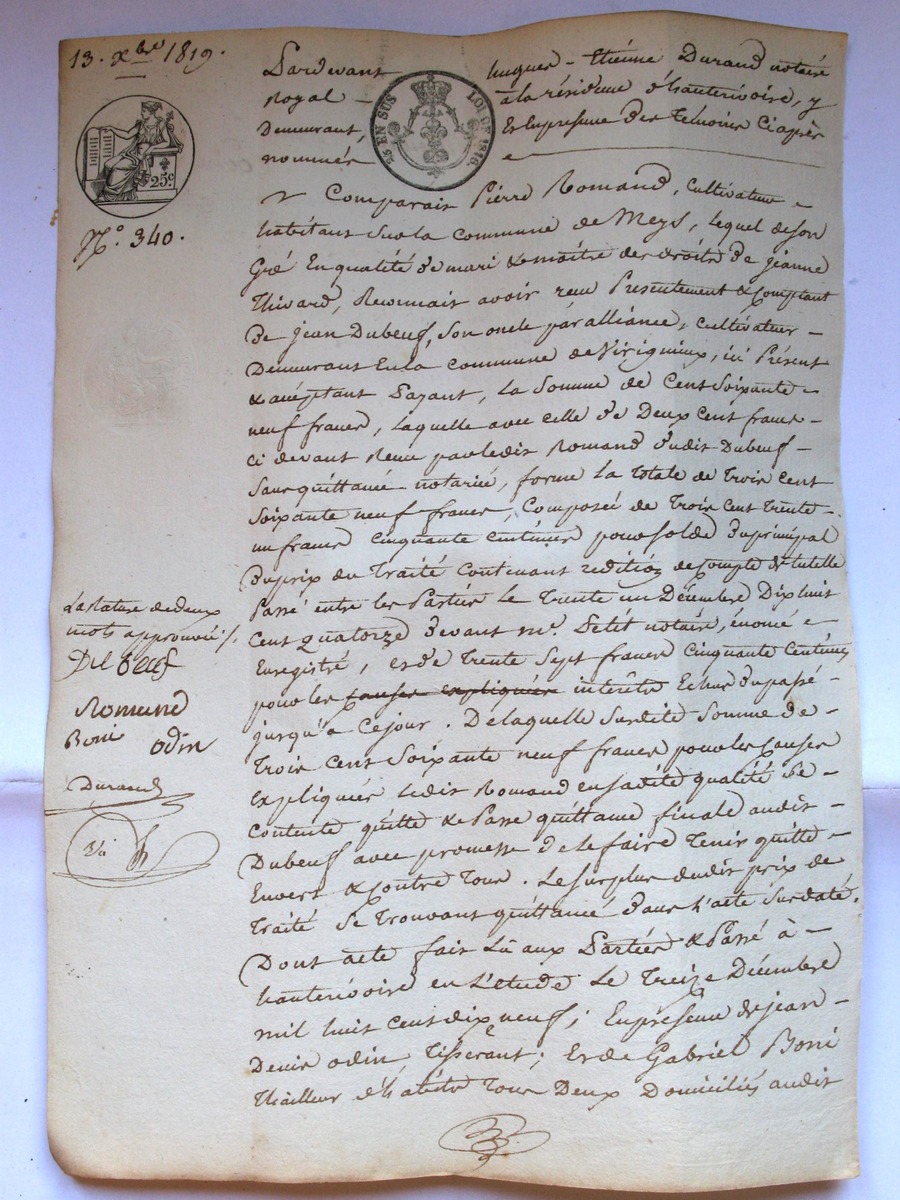 13. Xbre 1819.
25c
N.° 340.
EN SUS
LOI DE 1816.
Pardevant hugues - Etiénne Durand notaire
Royal - à la résidence d'hauterivoire, y
Demeurant, Et En presense des Témoins Ciaprès
nommés
Comparait Pierre Romand, Cultivateur
habitant Sur la commune de Meys, lequel de son
Gré En qualité de mari & maître des droits de jeanne
Thivard, Reconnait avoir reçu Présentement & Comptant
De jean Dubeuf, Son oncle par alliance, Cultivateur
Demeurant En la commune de Virigneux, ici Présent
& acceptant Payant, La Somme de Cent Soixante
neuf francs, laquelle avec celle de Deux Cent francs
ci devant Reçue par ledit Romand dudit Dubeuf
Sans quittance notariée, forme la Totale de Trois Cent
Soixante neuf francs, Composée de Trois Cent Trente
un francs Cinquante Centimes pour solde du principal
Du prix du Traité Contenant rédition de Compte de tutelle
Passé entre les Parties Le Trente un Décembre Dix huit
Cent quatorze Devant me. Petit notaire, énoncé
Enregistré, et de Trente Sept francs Cinquante Centimes
pour les Causes expliquées intérêts Echus du passé
jusqu'à ce jour. De laquelle Susdite Somme de
Trois Cent Soixante neuf francs pour les Causes
Expliquées Ledit Romand en sadite qualité Se
Contente quitte & Passe quittance finale audit
Dubeuf avec promesse de le faire Tenir quitte
Envers & Contre Tous. Le surplus dudit prix de
Traité Se Trouvant quittancé dans L'acte Susdaté.
Dont acte fait Lû aux Parties & Passé à
hauterivoire en L'étude Le Treize Décembre
mil huit cent dix neuf; En présense de jean
Denis odin Tisserant; Et de Gabriel Boni
Thailleur d'habits Tous Deux Domiciliés audit
La rature de deux
mots approuvée
Dubeuf
Romand
Boni odin
Durand